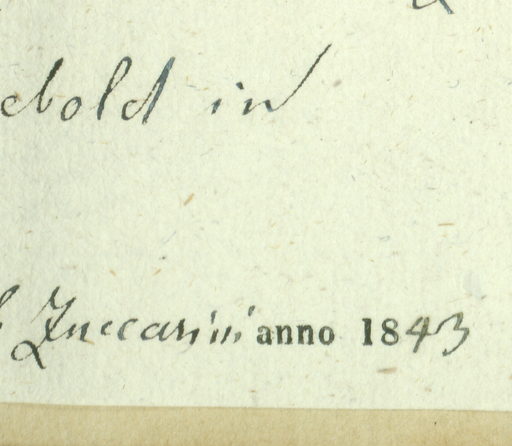 ebold in
Zuccarini anno 1843